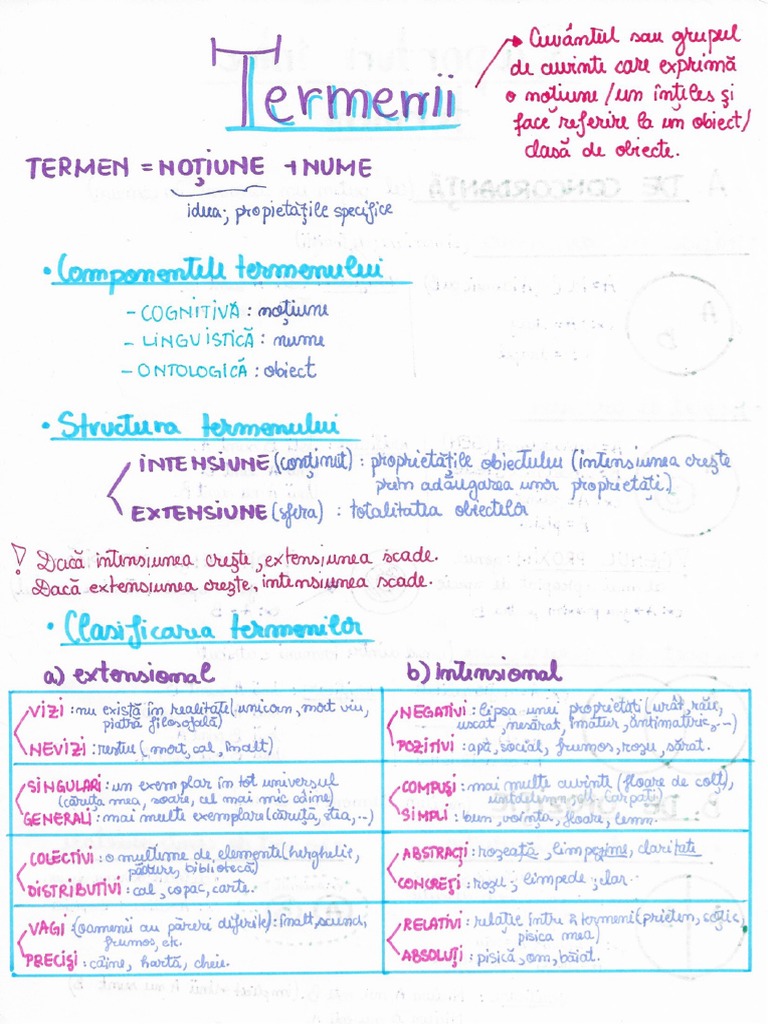 Termenii
Cuvântul sau grupul
de cuvinte care exprimă
o noțiune/un înțeles și
face referire la un obiect/
clasă de obiecte.
TERMEN = NOȚIUNE + NUME
ideea; proprietățile specifice
• Componentele termenului
- COGNITIVĂ : noțiune
- LINGVISTICĂ : nume
- ONTOLOGICĂ : obiect
• Structura termenului
INTENSIUNE (conținut) : proprietățile obiectului (intensiunea crește
prin adăugarea unor proprietăți.)
EXTENSIUNE (sfera) : totalitatea obiectelor
! Dacă intensiunea crește, extensiunea scade.
Dacă extensiunea crește, intensiunea scade.
• Clasificarea termenilor
a) extensional
VIZI : nu există în realitate (unicorn, mort viu,
piatră filosofală)
NEVIZI : restul (mort, cal, înalt)
SINGULARI : un exemplar în tot universul
(căruța mea, soare, cel mai mic câine)
GENERALI : mai multe exemplare (căruță, stea, ..)
COLECTIVI : o mulțime de elemente (herghelie,
pădure, bibliotecă)
DISTRIBUTIVI : cal, copac, carte.
VAGI : (oamenii au păreri diferite) : înalt, scund,
frumos, etc.
PRECIȘI : câine, hartă, cheie.
b) intensional
NEGATIVI : lipsa unei proprietăți (urât, rău,
uscat, nesărat, imatur, antimaterie, ...)
POZITIVI : apă, social, frumos, roșu, sărat.
COMPUȘI : mai multe cuvinte (floare de colț),
carpați)
SIMPLI : bun, voință, floare, lemn.
ABSTRACȚI : roșeață, limpezime, claritate
CONCREȚI : roșu ; limpede ; clar.
RELATIVI : relație între 2 termeni (prieten, soție,
pisica mea)
ABSOLUȚI : pisică, om, băiat.